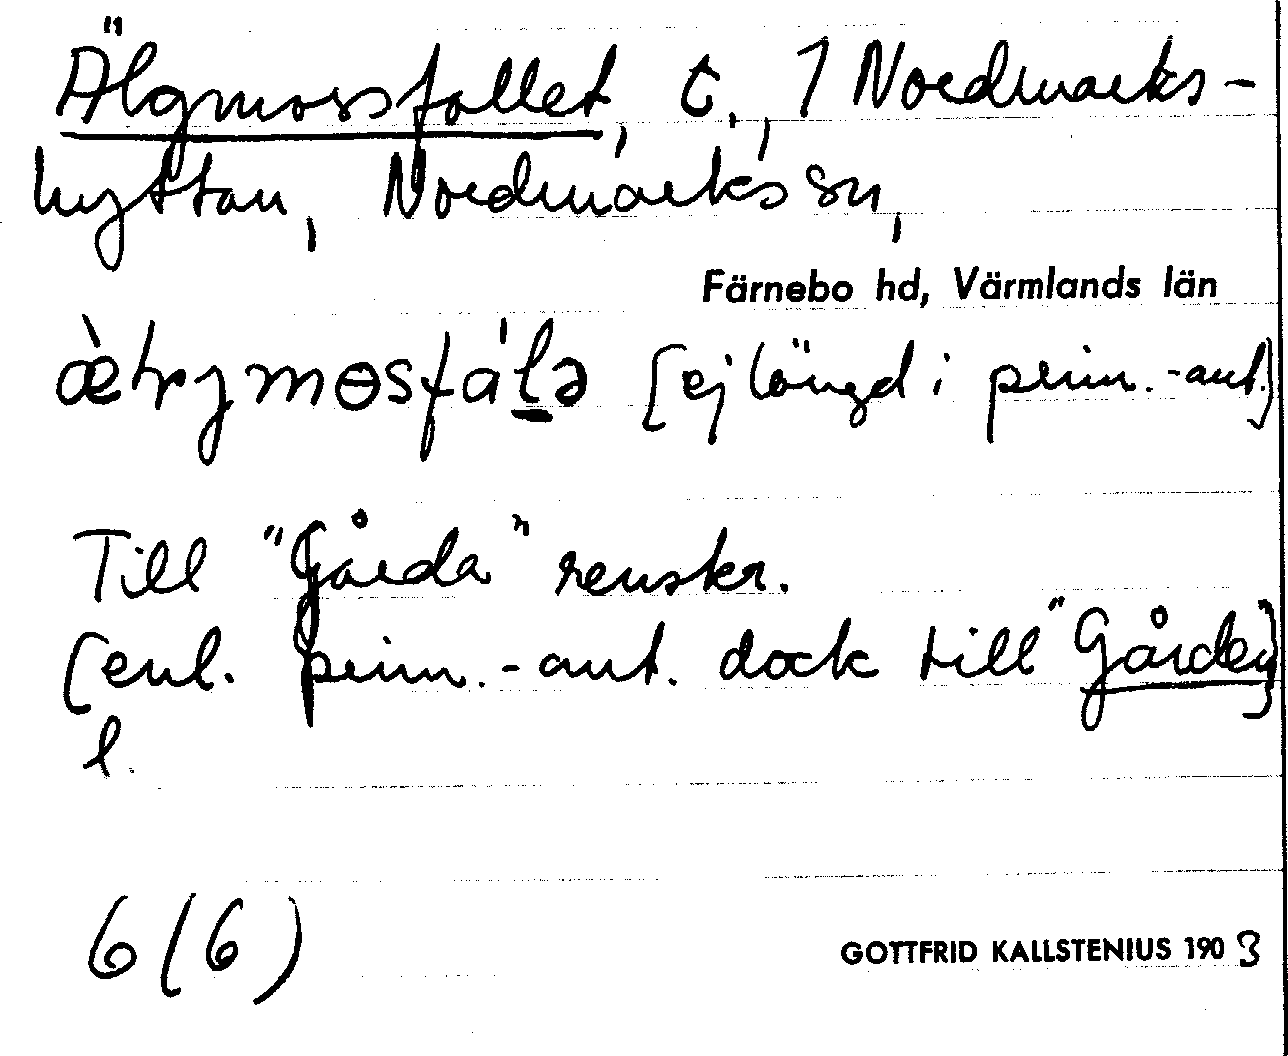 Älgmossfallet, t., 1 Nordmarks-
hyttan, Nordmarks sn,
Färnebo hd, Värmlands län
[ej längd i prim.-ant.]
Till "Gårda" renskr.
[enl. prim.-ant. dock till "Gården]
l.
6 (6)
GOTTFRID KALLSTENIUS 1903